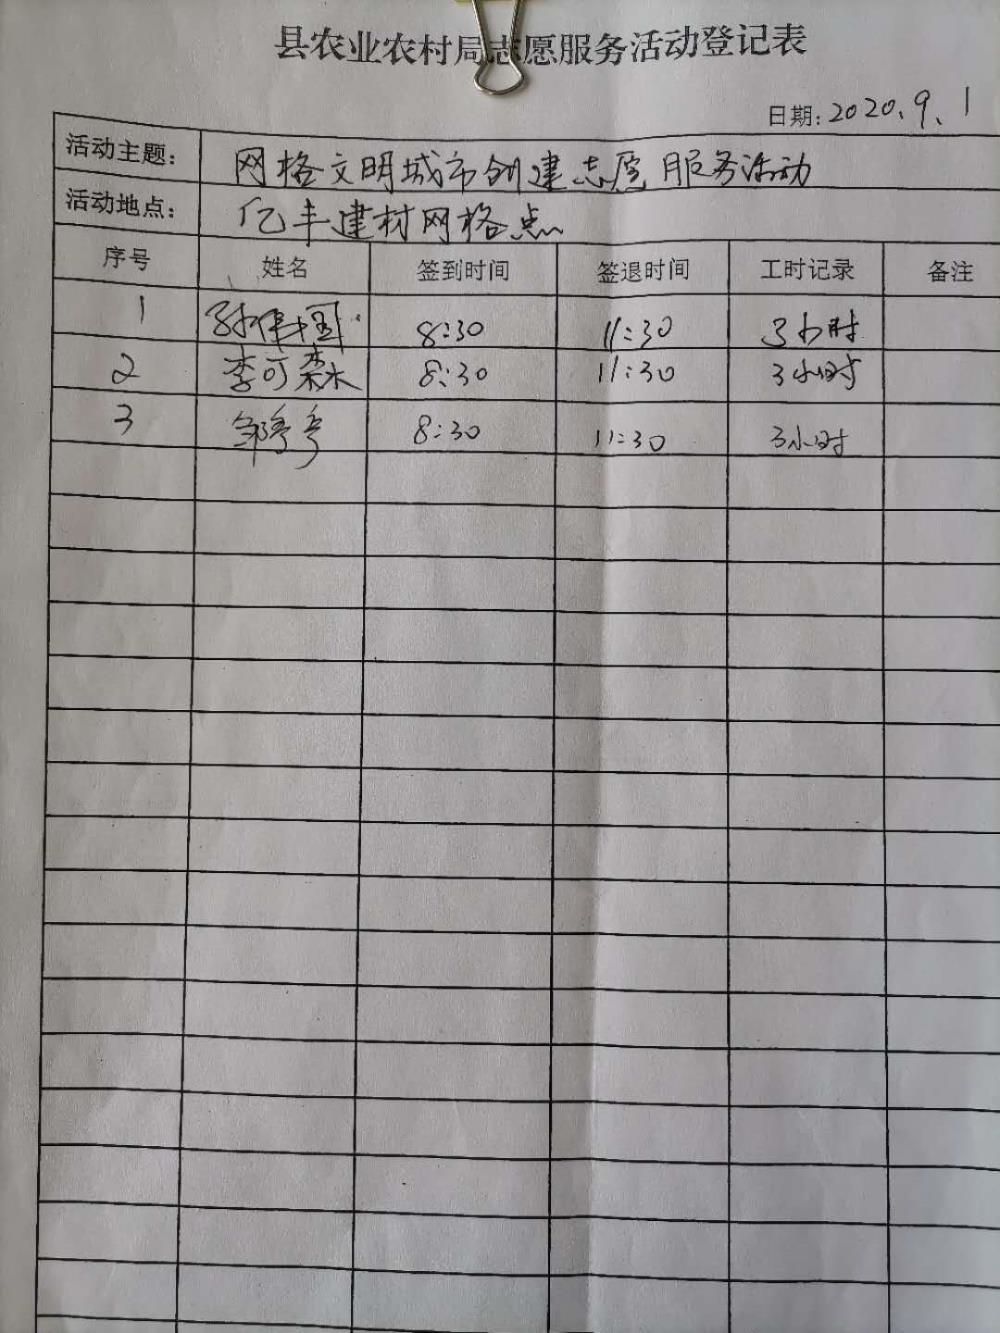 县农业农村局志愿服务活动登记表
日期: 2020.9.1
活动主题: 网格文明城市创建志愿服务活动
活动地点: 亿丰建材网格点
序号 姓名 签到时间 签退时间 工时记录 备注
1 孙伟国 8:30 11:30 3小时
2 李可森 8:30 11:30 3小时
3 邹 8:30 11:30 3小时